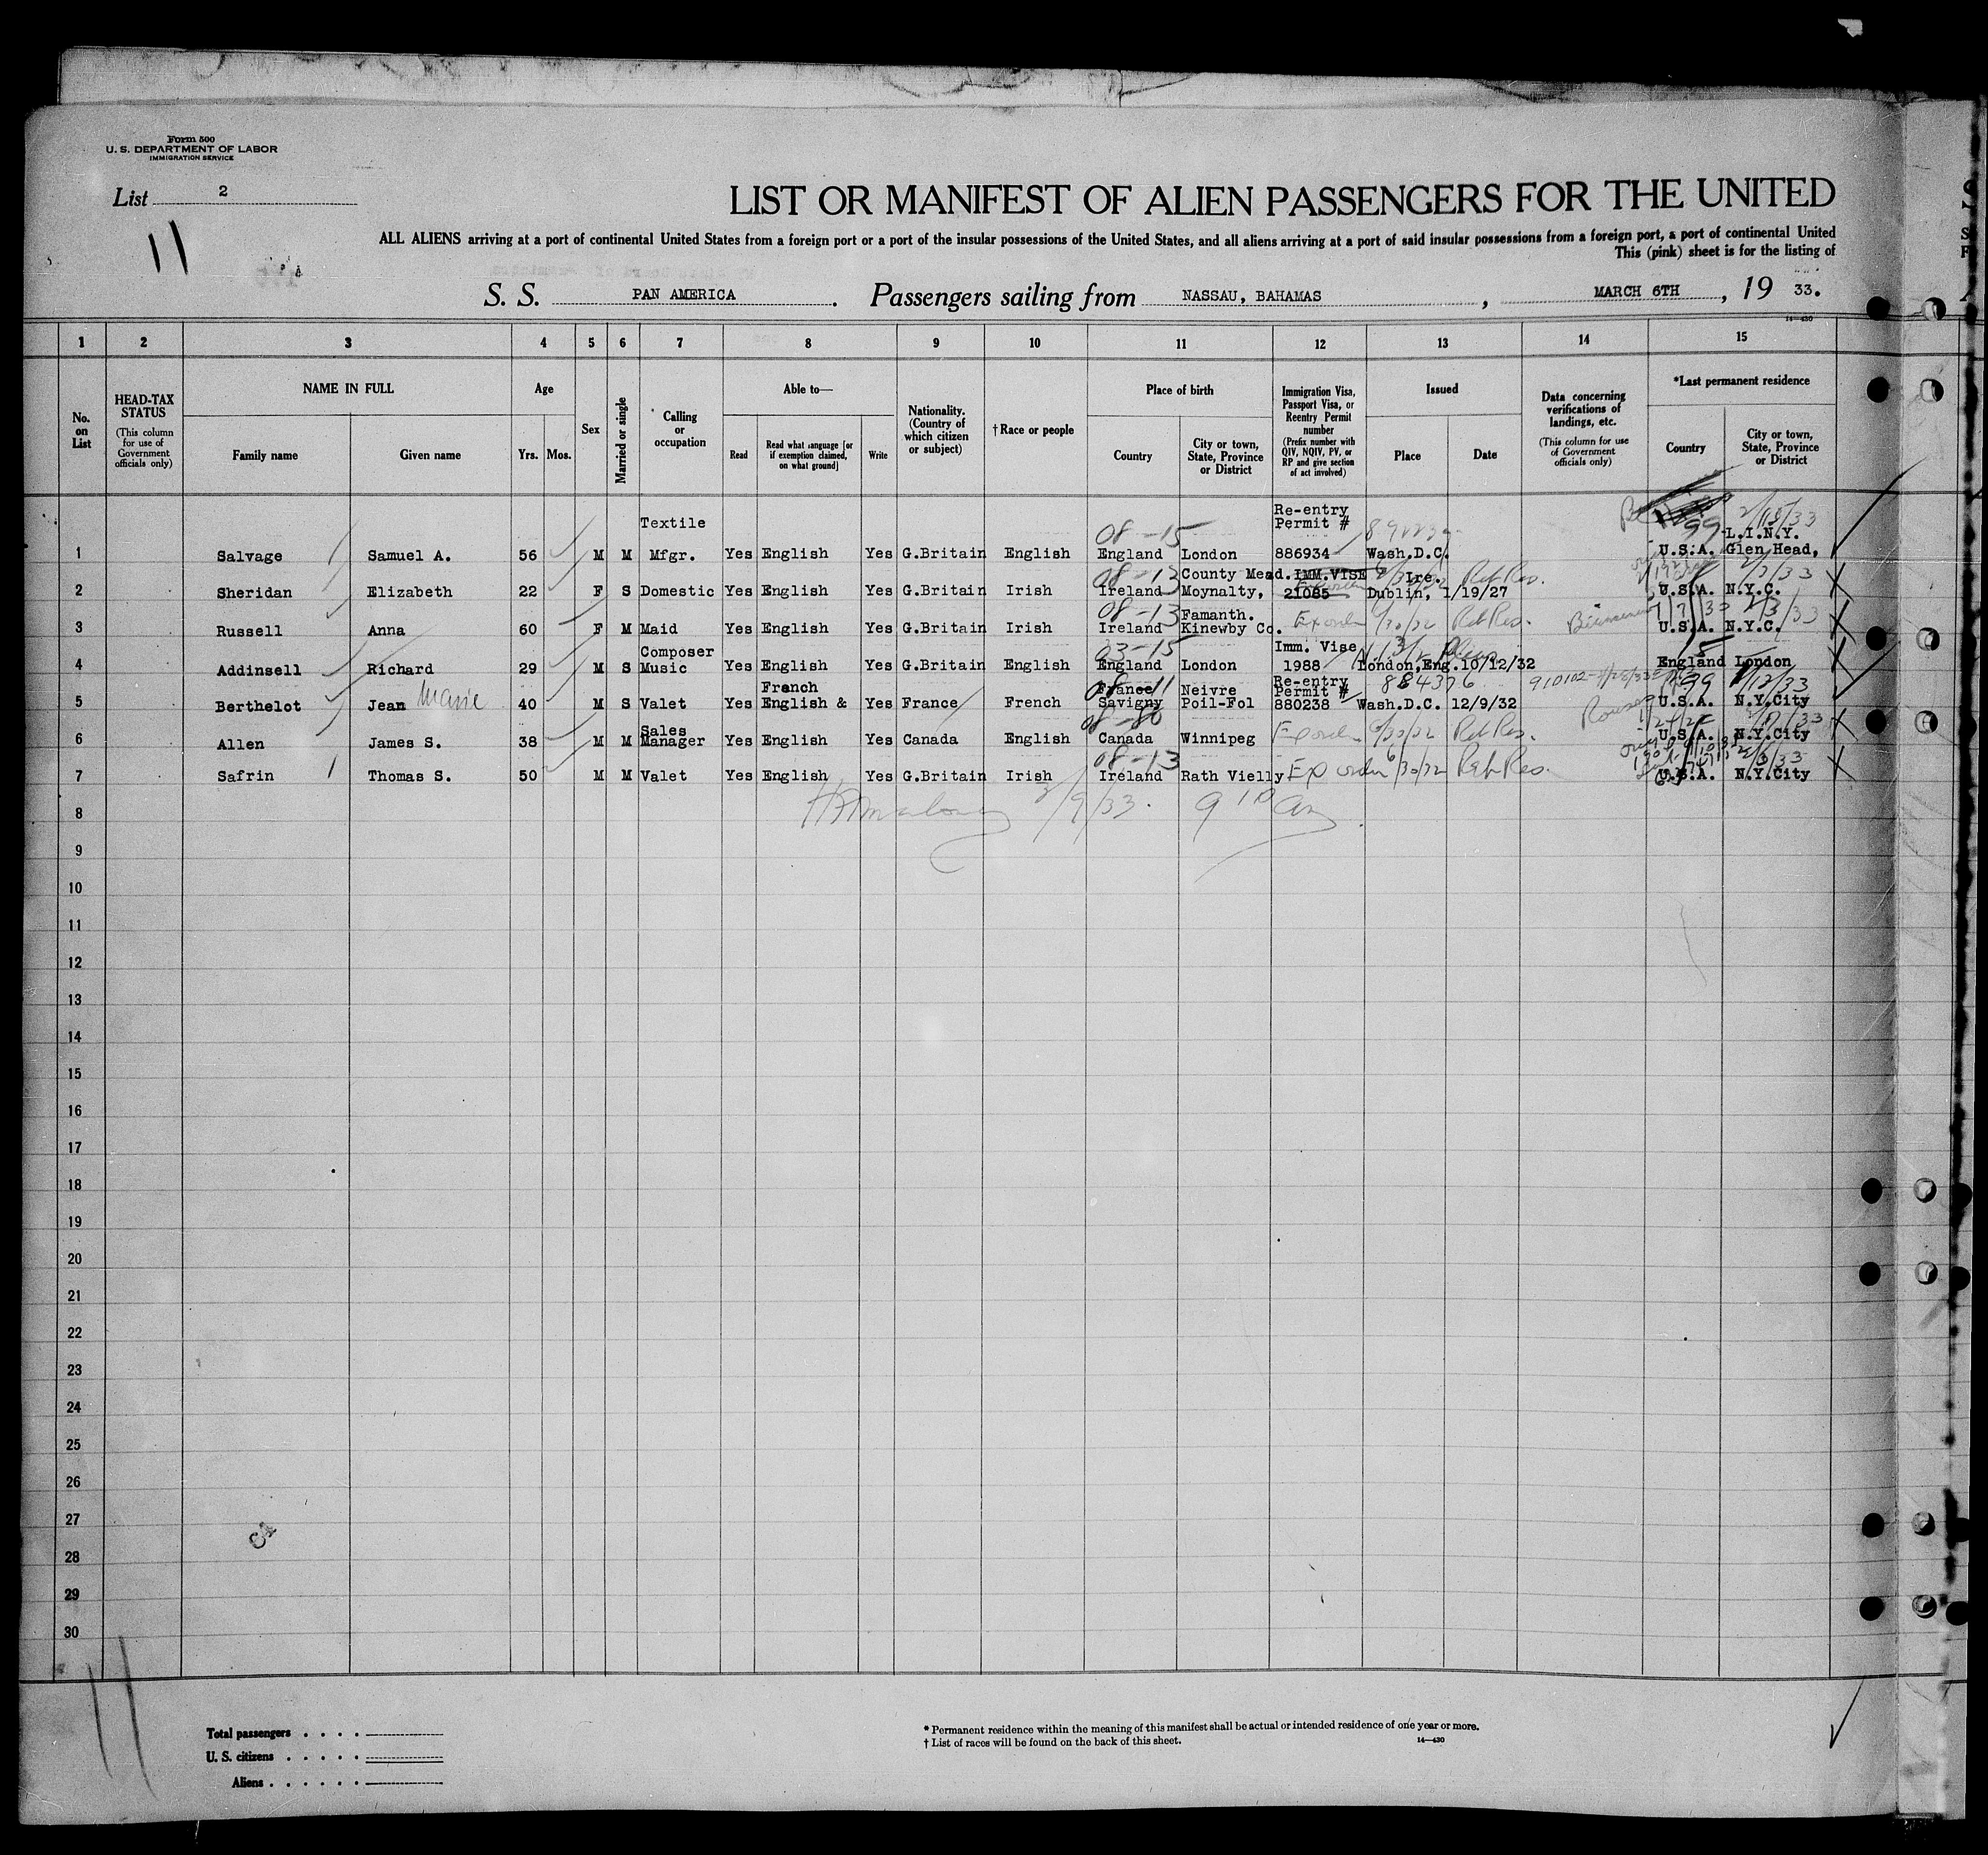 Form 500
U. S. DEPARTMENT OF LABOR
IMMIGRATION SERVICE
List 2
11
LIST OR MANIFEST OF ALIEN PASSENGERS FOR THE UNITED
ALL ALIENS arriving at a port of continental United States from a foreign port or a port of the insular possessions of the United States, and all aliens arriving at a port of said insular possessions from a foreign port, a port of continental United
This (pink) sheet is for the listing of
S. S. PAN AMERICA. Passengers sailing from NASSAU, BAHAMAS, MARCH 6TH, 19 33.
14—430
1 2 3 4 5 6 7 8 9 10 11 12 13 14 15
No. on List
HEAD-TAX STATUS (This column for use of Government officials only)
NAME IN FULL
Family name Given name
Age
Yrs. Mos.
Sex
Married or single
Calling or occupation
Able to—
Read Read what language [or if exemption claimed, on what ground] Write
Nationality. (Country of which citizen or subject)
†Race or people
Place of birth
Country City or town, State, Province or District
Immigration Visa, Passport Visa, or Reentry Permit number (Prefix number with QIV, NQIV, PV, or RP and give section of act involved)
Issued
Place Date
Data concerning verifications of landings, etc. (This column for use of Government officials only)
*Last permanent residence
Country City or town, State, Province or District
Textile Re-entry Permit # 08-15 99 L.I.N.Y.
1 Salvage Samuel A. 56 M M Mfgr. Yes English Yes G.Britain English England London 886934 Wash.D.C. U.S.A. Glen Head,
08-13 County Mead. IMM.VISE Ire. Ret Res.
2 Sheridan Elizabeth 22 F S Domestic Yes English Yes G.Britain Irish Ireland Moynalty, 21085 Dublin, 1/19/27 U.S.A. N.Y.C.
08-13 Famanth. Ex order 6/30/32 Ret Res.
3 Russell Anna 60 F M Maid Yes English Yes G.Britain Irish Ireland Kinewby Co. U.S.A. N.Y.C.
Composer 03-15 Imm. Vise 15
4 Addinsell Richard 29 M S Music Yes English Yes G.Britain English England London 1988 London,Eng.10/12/32 England London
French 08-11 France Neivre Re-entry Permit # 884376 910102 99
5 Berthelot Jean Marie 40 M S Valet Yes English & Yes France French Savigny Poil-Fol 880238 Wash.D.C. 12/9/32 U.S.A. N.Y.City
Sales 08-80 Ex order 6/30/32 Ret Res.
6 Allen James S. 38 M M Manager Yes English Yes Canada English Canada Winnipeg U.S.A. N.Y.City
08-13
7 Safrin Thomas S. 50 M M Valet Yes English Yes G.Britain Irish Ireland Rath Vielly Ex order 6/30/32 Ret Res. U.S.A. N.Y.City
8 3/9/33. 9 10 am
9
10
11
12
13
14
15
16
17
18
19
20
21
22
23
24
25
26
27
28
29
30
11
Total passengers
U. S. citizens
Aliens
* Permanent residence within the meaning of this manifest shall be actual or intended residence of one year or more.
† List of races will be found on the back of this sheet. 14—430